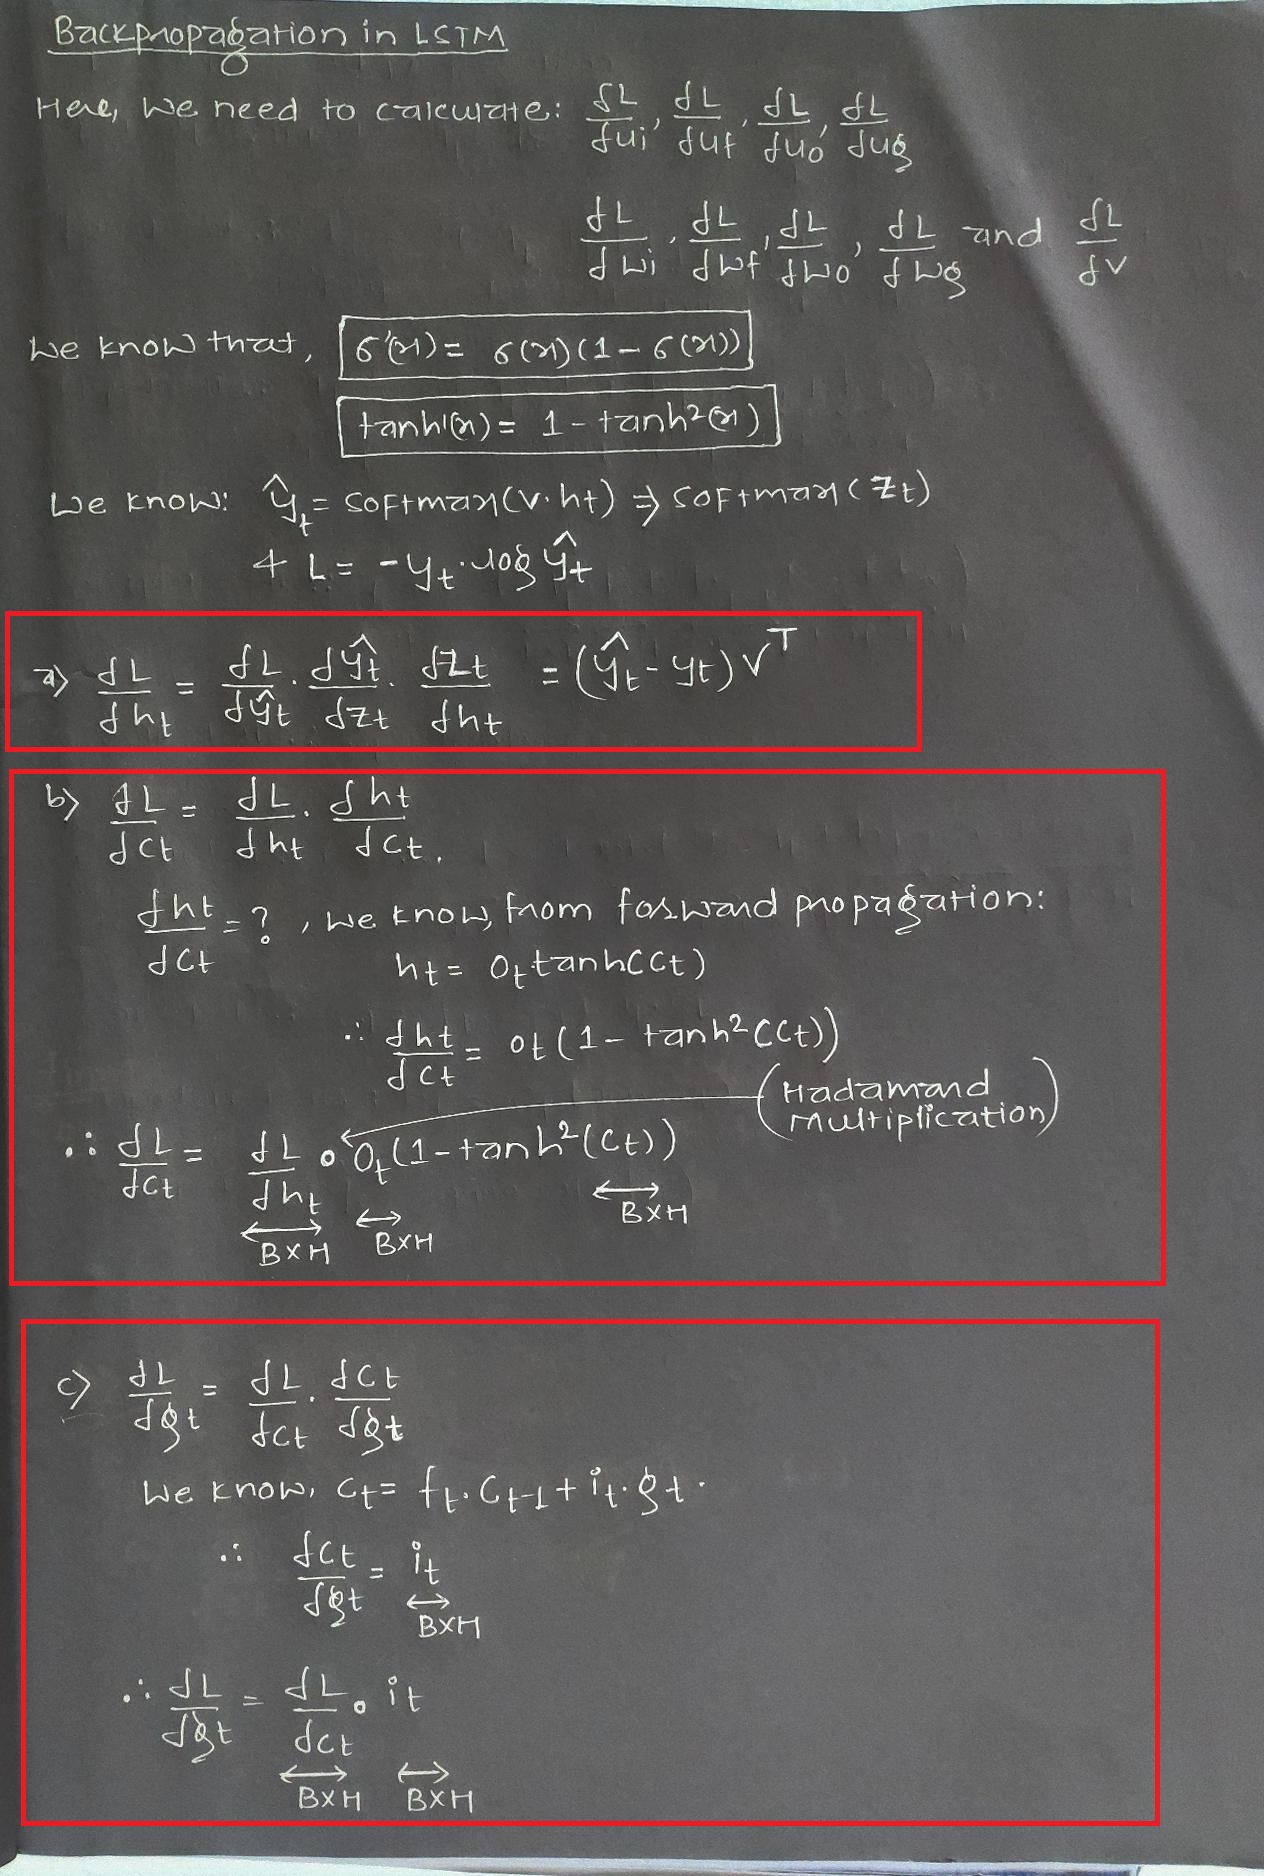 Backpropagation in LSTM
Here, we need to calculate: δL/δui, δL/δuf, δL/δuo, δL/δug
δL/δwi, δL/δwf, δL/δwo, δL/δwg and δL/δv
We know that, σ'(x) = σ(x)(1-σ(x))
tanh'(x) = 1-tanh²(x)
We know: ŷt = softmax(v.ht) ⇒ softmax(zt)
& L = -yt.log ŷt
a) δL/δht = δL/δŷt . δŷt/δzt . δzt/δht = (ŷt - yt) V^T
b) δL/δCt = δL/δht . δht/δCt.
δht/δCt = ?, we know, from forward propagation:
ht = Ot tanh(Ct)
∴ δht/δCt = ot(1-tanh²(Ct))
(Hadamard
Multiplication)
∴ δL/δCt = δL/δht ∘ Ot(1-tanh²(Ct))
BXH BXH BXH
c) δL/δgt = δL/δCt . δCt/δgt
We know, Ct = ft.Ct-1 + it.gt.
∴ δCt/δgt = it
BXH
∴ δL/δgt = δL/δCt ∘ it
BXH BXH